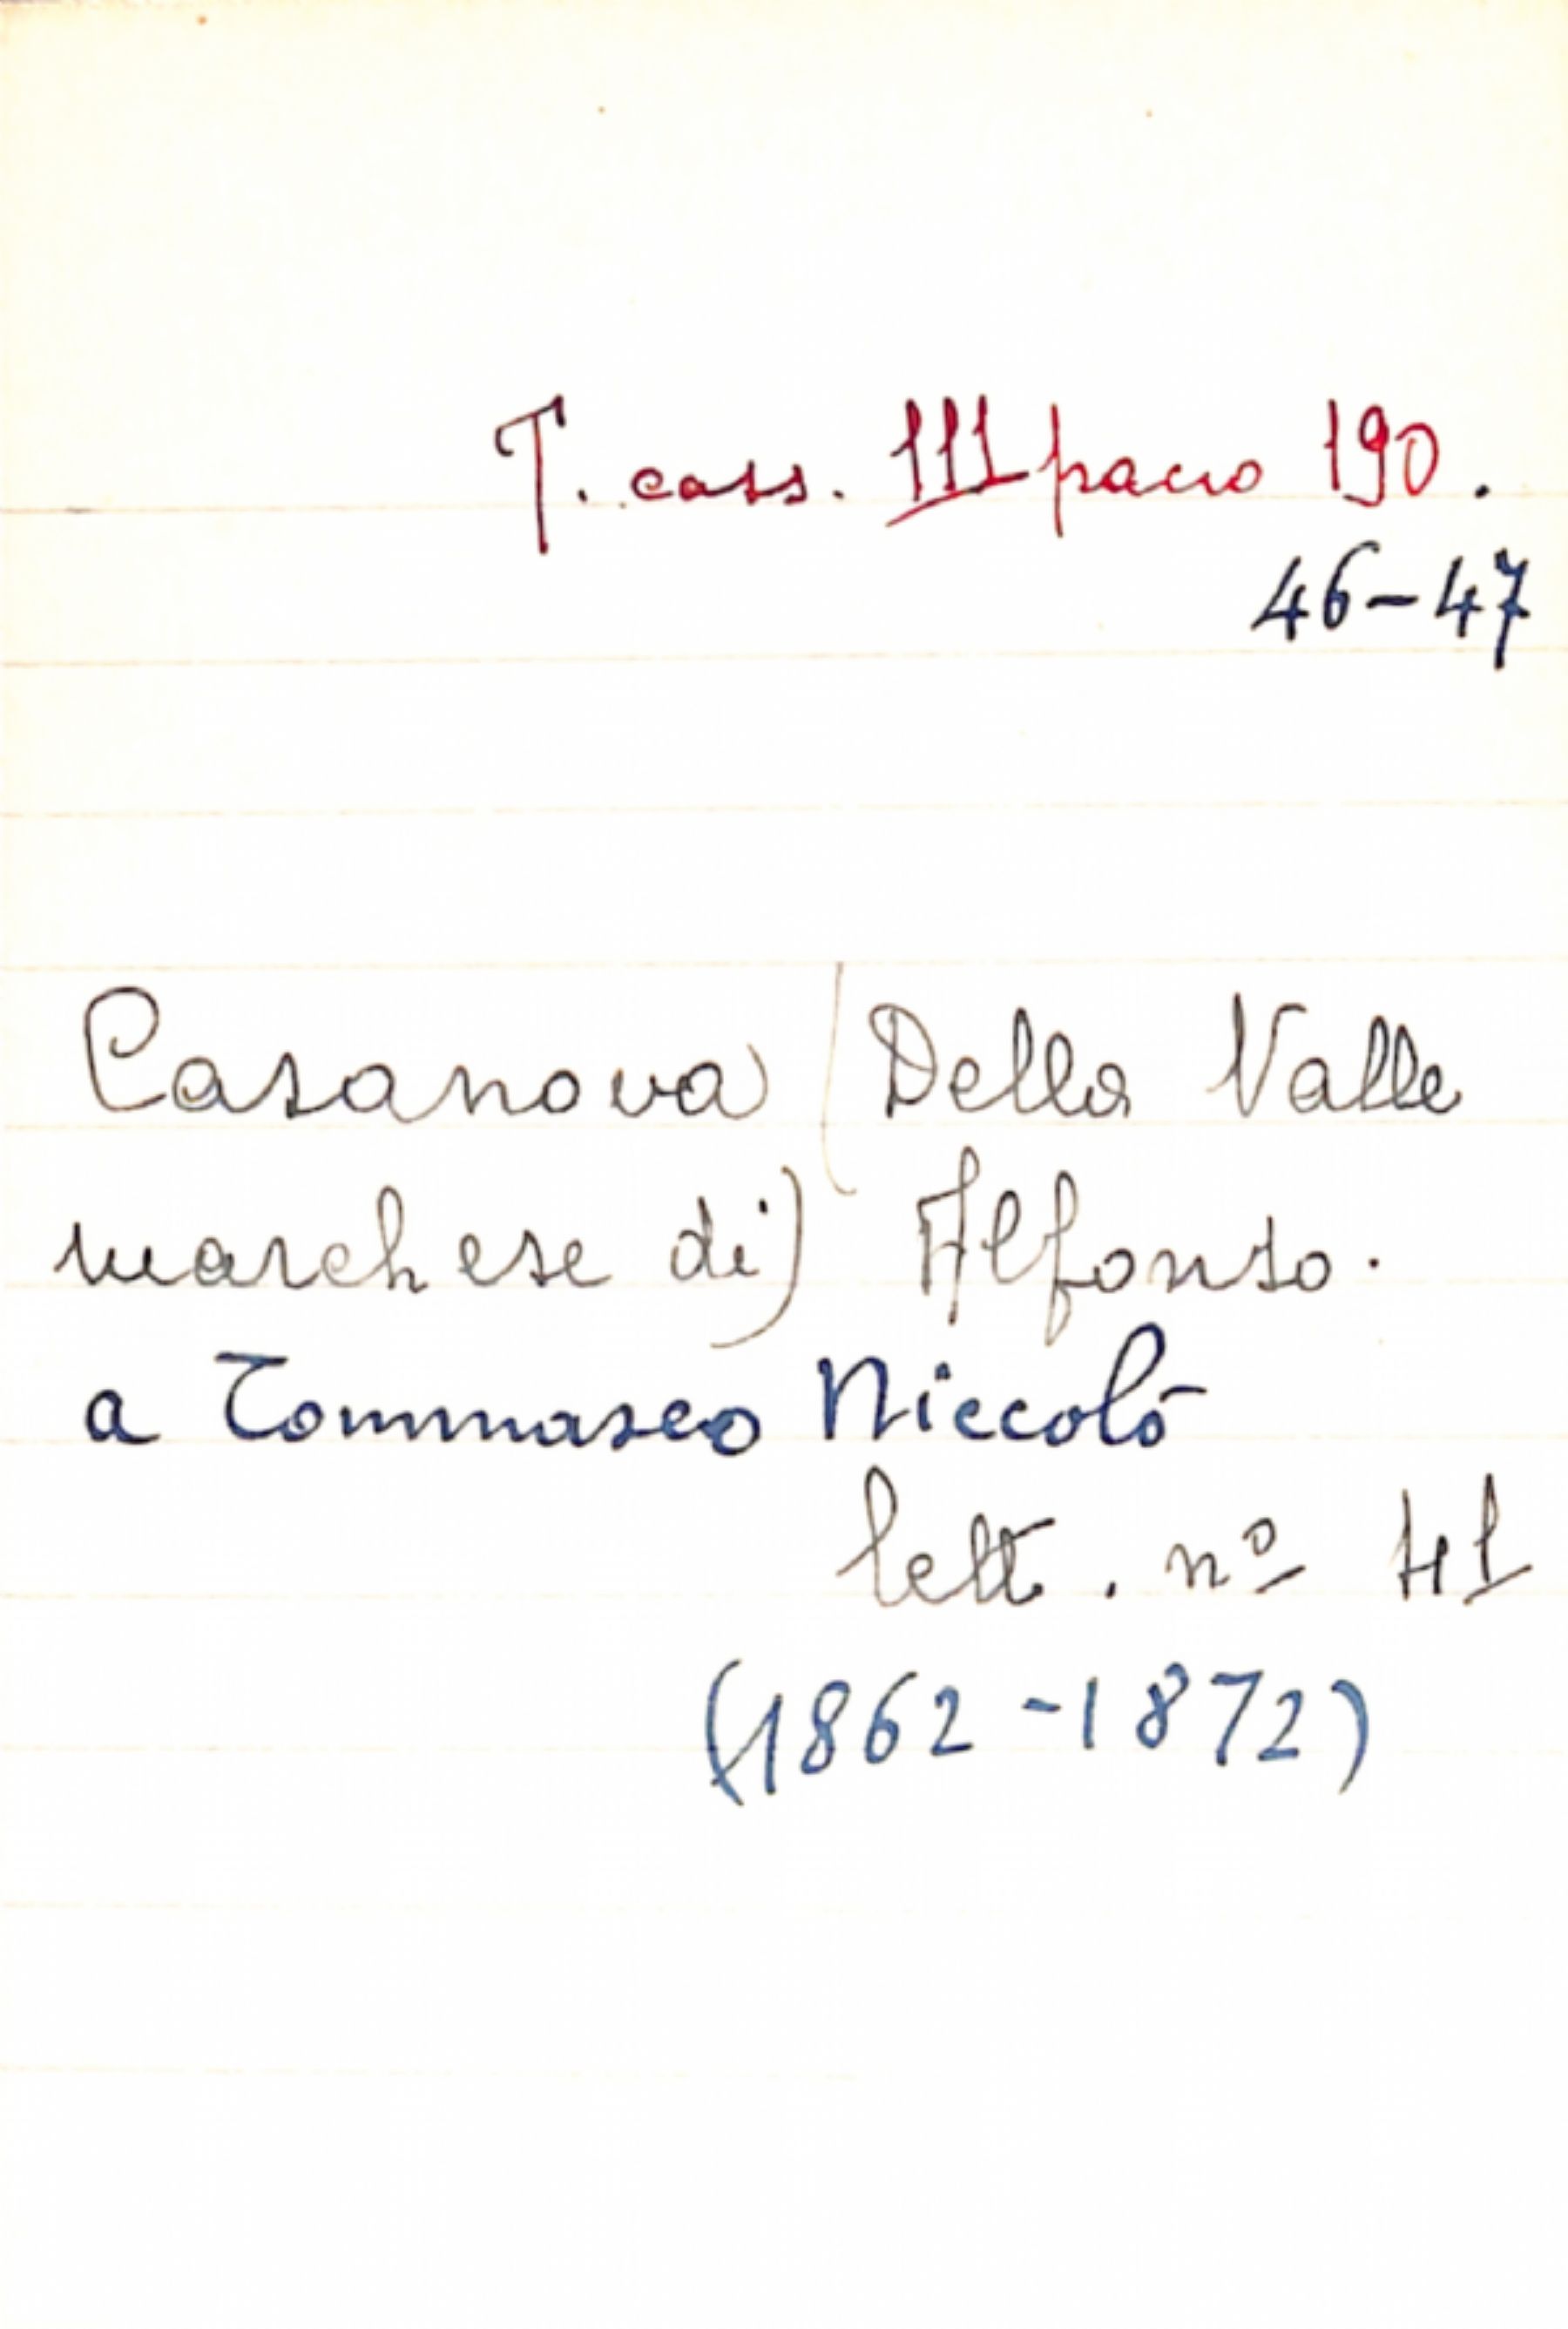 T. cass. III pacco 190.
46-47
Casanova (Della Valle
marchese di) Alfonso.
a Tommaseo Niccolò
lett. nº 41
(1862-1872)